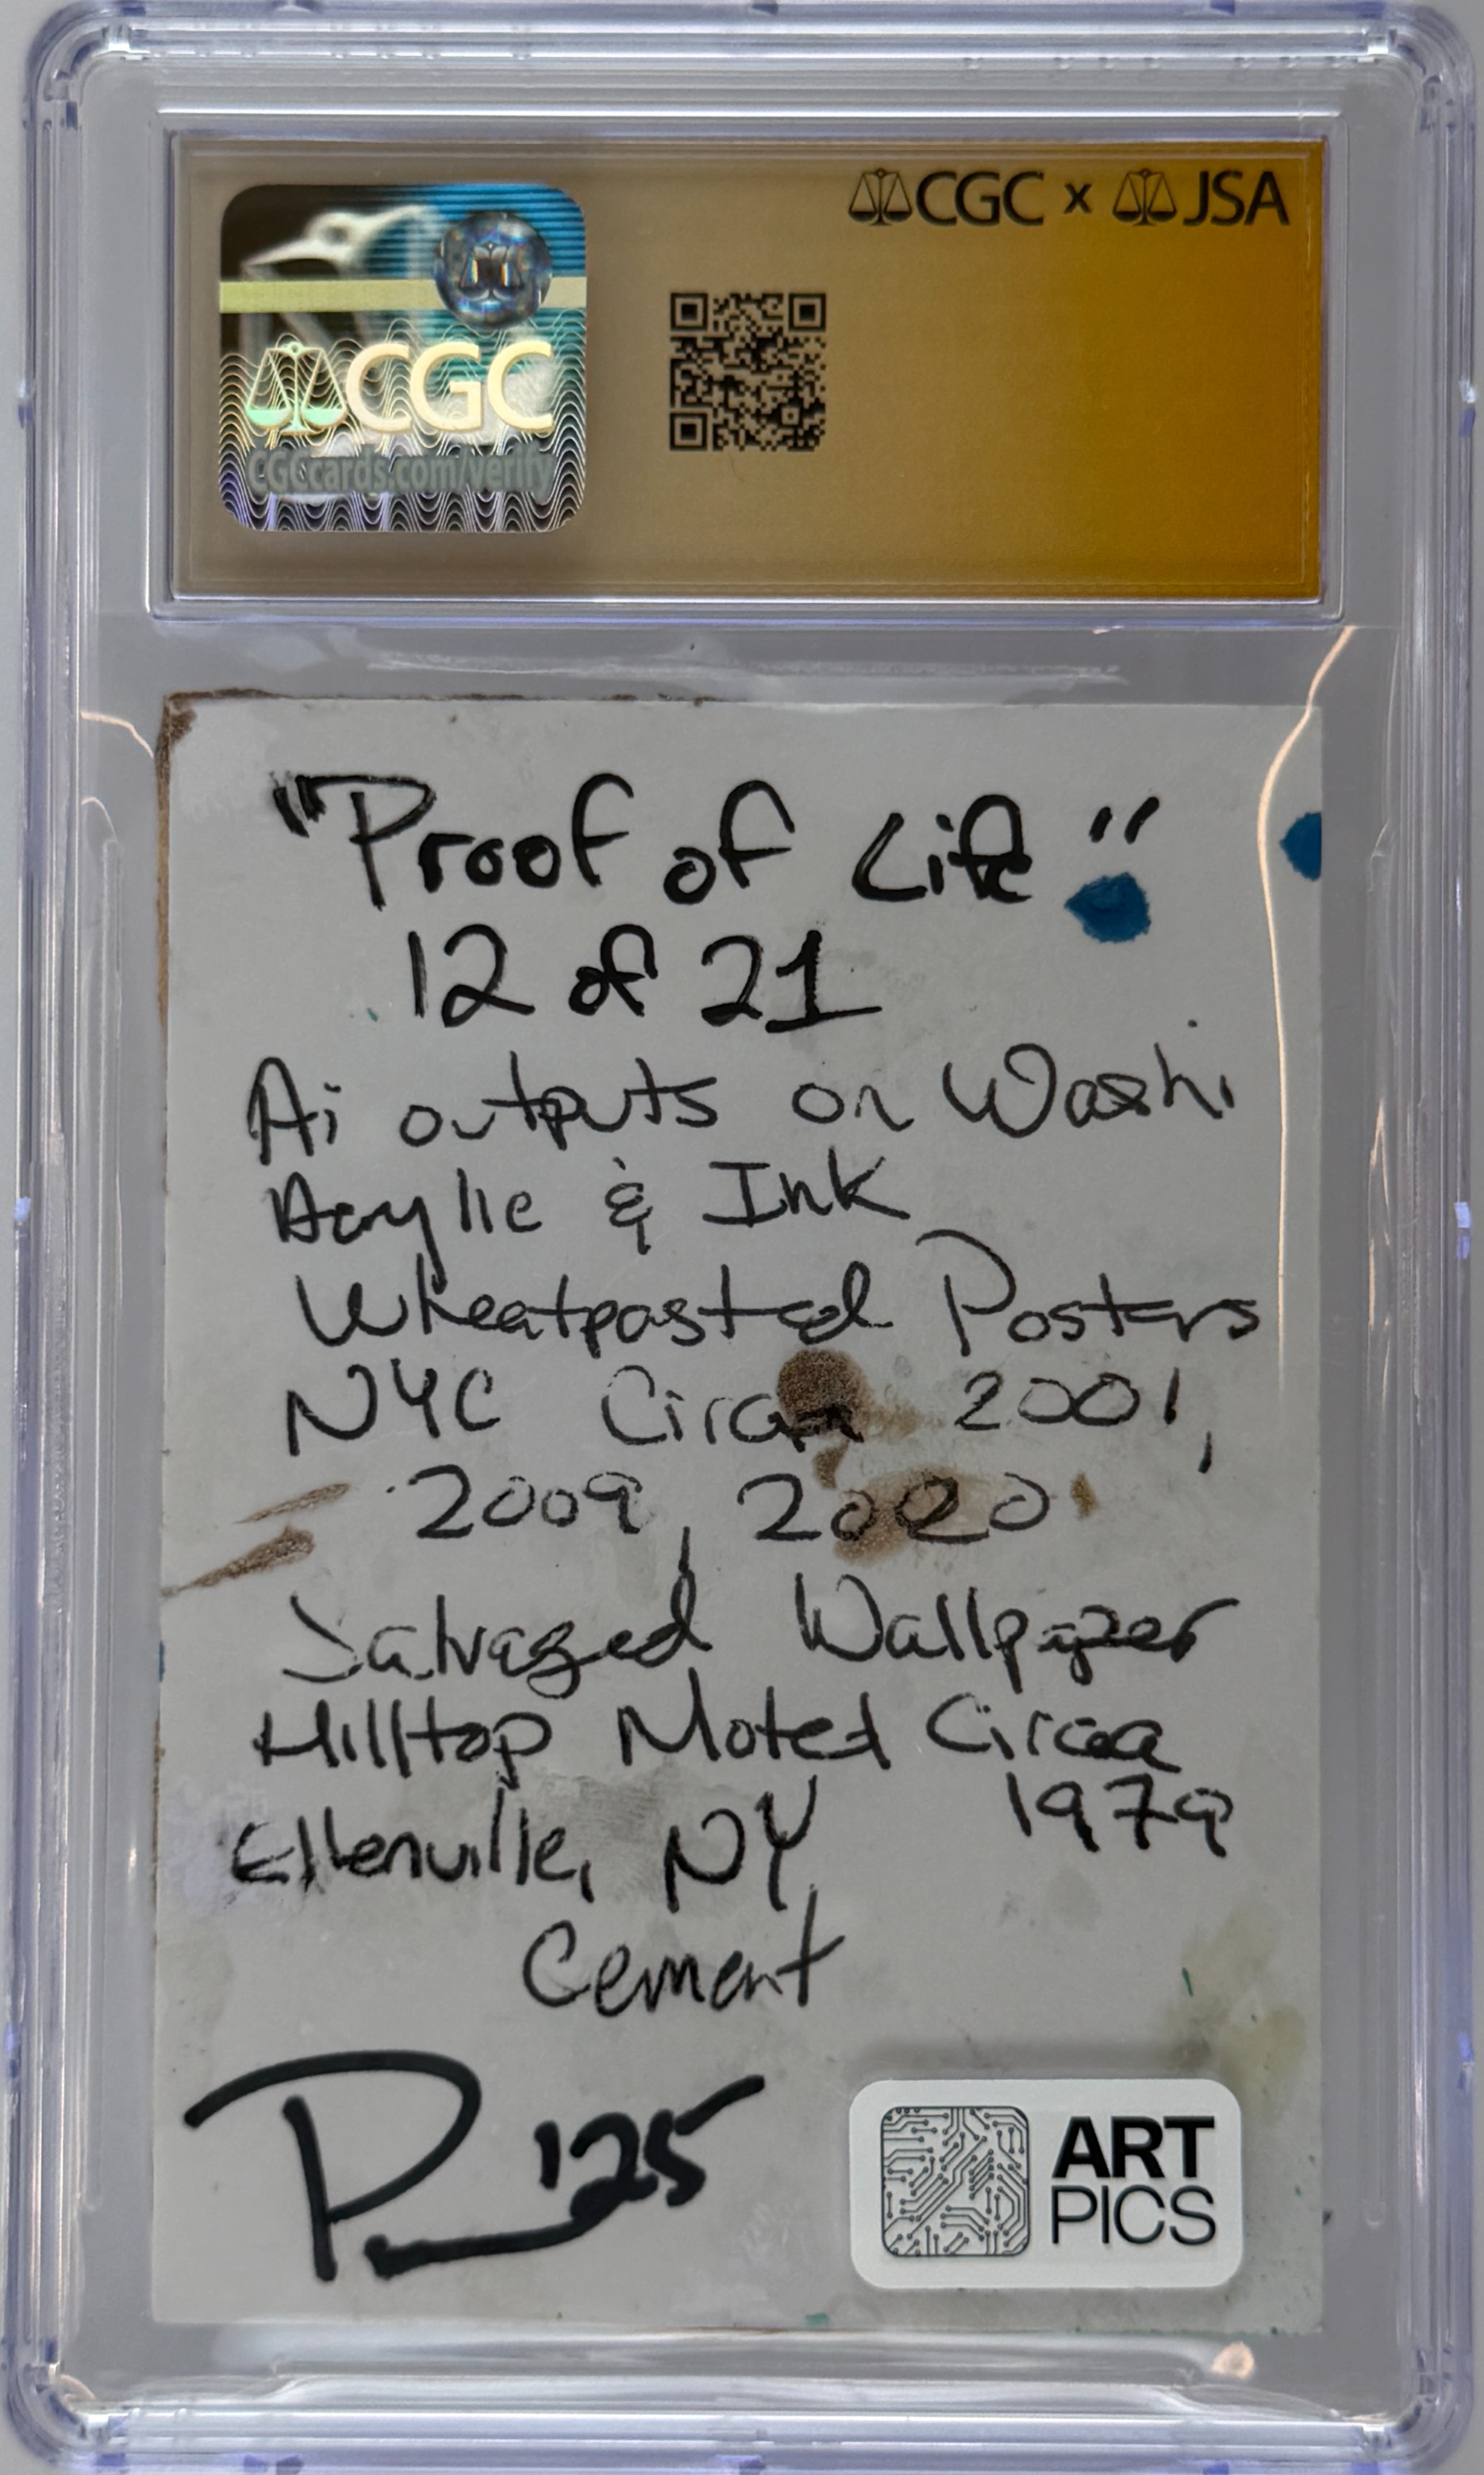 CGC x JSA
CGC
CGCcards.com/verify
"Proof of Life"
12 of 21
Ai outputs on Washi
Acrylic & Ink
Wheatpasted Posters
NYC Circa 2001,
2009, 2020
Salvaged Wallpaper
Hilltop Motel Circa
1979
Ellenville, NY
Cement
P '25
ART
PICS